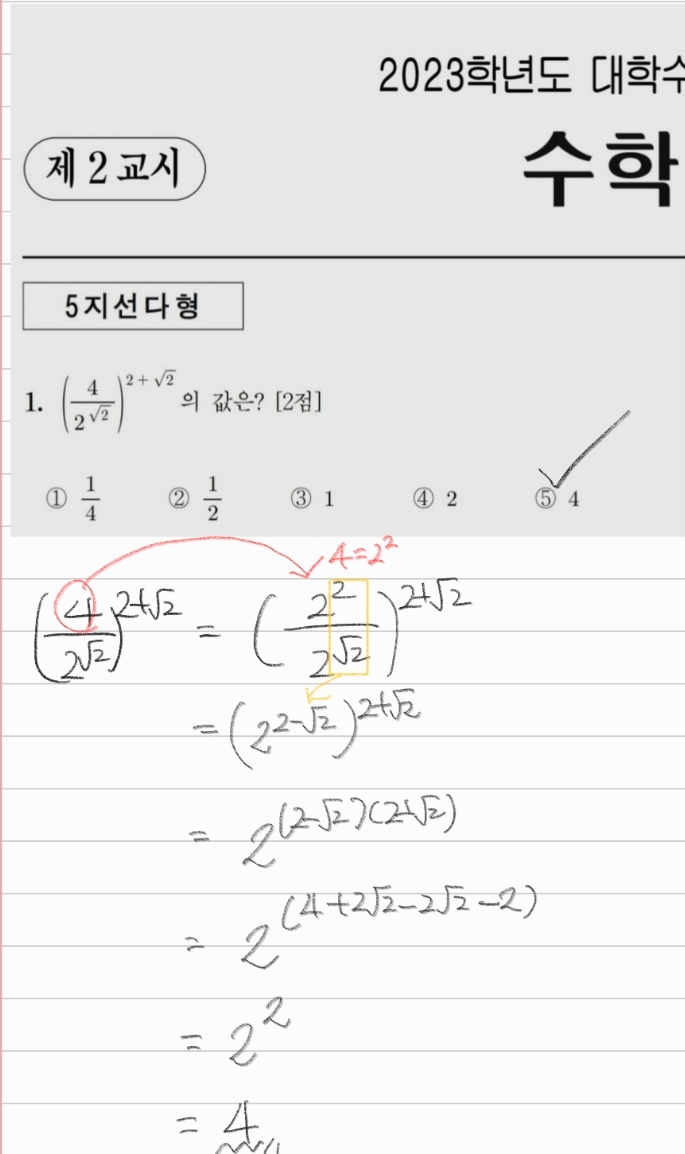 2023학년도 대학수
제 2 교시
수학
5지선다형
1. (4/2^√2)^(2+√2) 의 값은? [2점]
① 1/4 ② 1/2 ③ 1 ④ 2 ⑤ 4
4=2²
(4/2^√2)^(2+√2) = (2²/2^√2)^(2+√2)
= (2^(2-√2))^(2+√2)
= 2^((2-√2)(2+√2))
= 2^((4+2√2-2√2-2))
= 2²
= 4